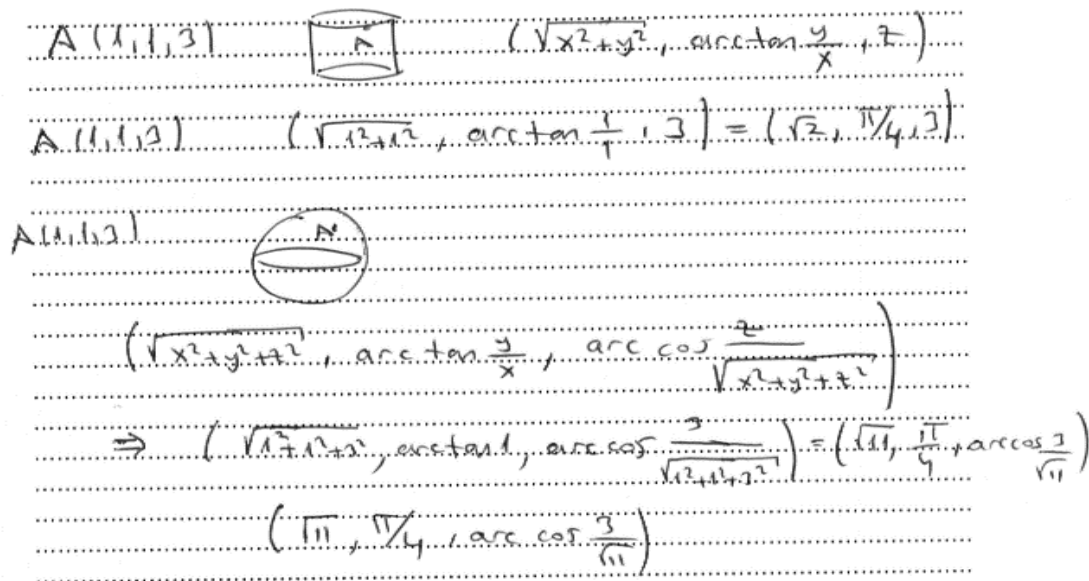 A (1,1,3) A (√(x²+y²), arctan y/x, z)
A (1,1,3) (√(1²+1²), arctan 1/1, 3) = (√2, π/4, 3)
A(1,1,3) A
(√(x²+y²+z²), arc tan y/x, arc cos z/√(x²+y²+z²))
⇒ (√(1²+1²+3²), arctan1, arccos 3/√(1²+1²+3²)) = (√11, π/4, arccos 3/√11)
(√11, π/4, arc cos 3/√11)